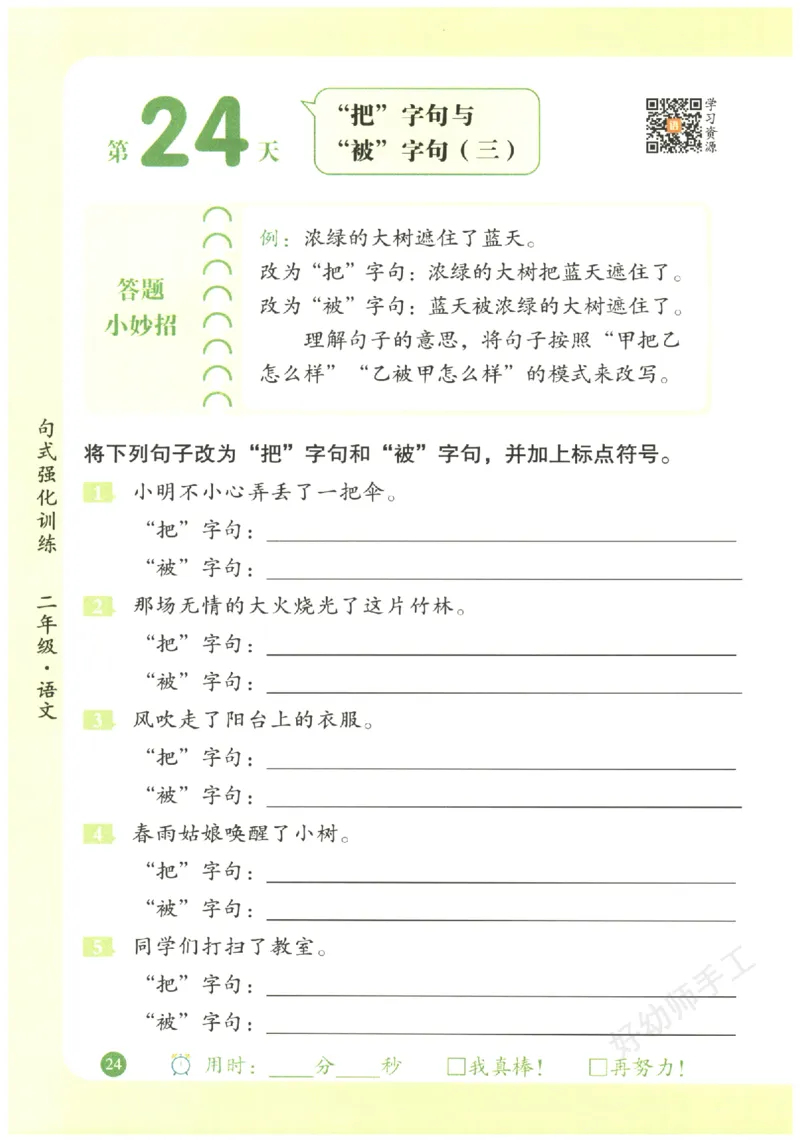 第24天
“把”字句与
“被”字句（三）
学习资源
答题
小妙招
例：浓绿的大树遮住了蓝天。
改为“把”字句：浓绿的大树把蓝天遮住了。
改为“被”字句：蓝天被浓绿的大树遮住了。
理解句子的意思，将句子按照“甲把乙
怎么样”“乙被甲怎么样”的模式来改写。
句式强化训练 二年级·语文
将下列句子改为“把”字句和“被”字句，并加上标点符号。
1 小明不小心弄丢了一把伞。
“把”字句：
“被”字句：
2 那场无情的大火烧光了这片竹林。
“把”字句：
“被”字句：
3 风吹走了阳台上的衣服。
“把”字句：
“被”字句：
4 春雨姑娘唤醒了小树。
“把”字句：
“被”字句：
5 同学们打扫了教室。
“把”字句：
“被”字句：
好幼师手工
24 用时：____分____秒 □我真棒！ □再努力！